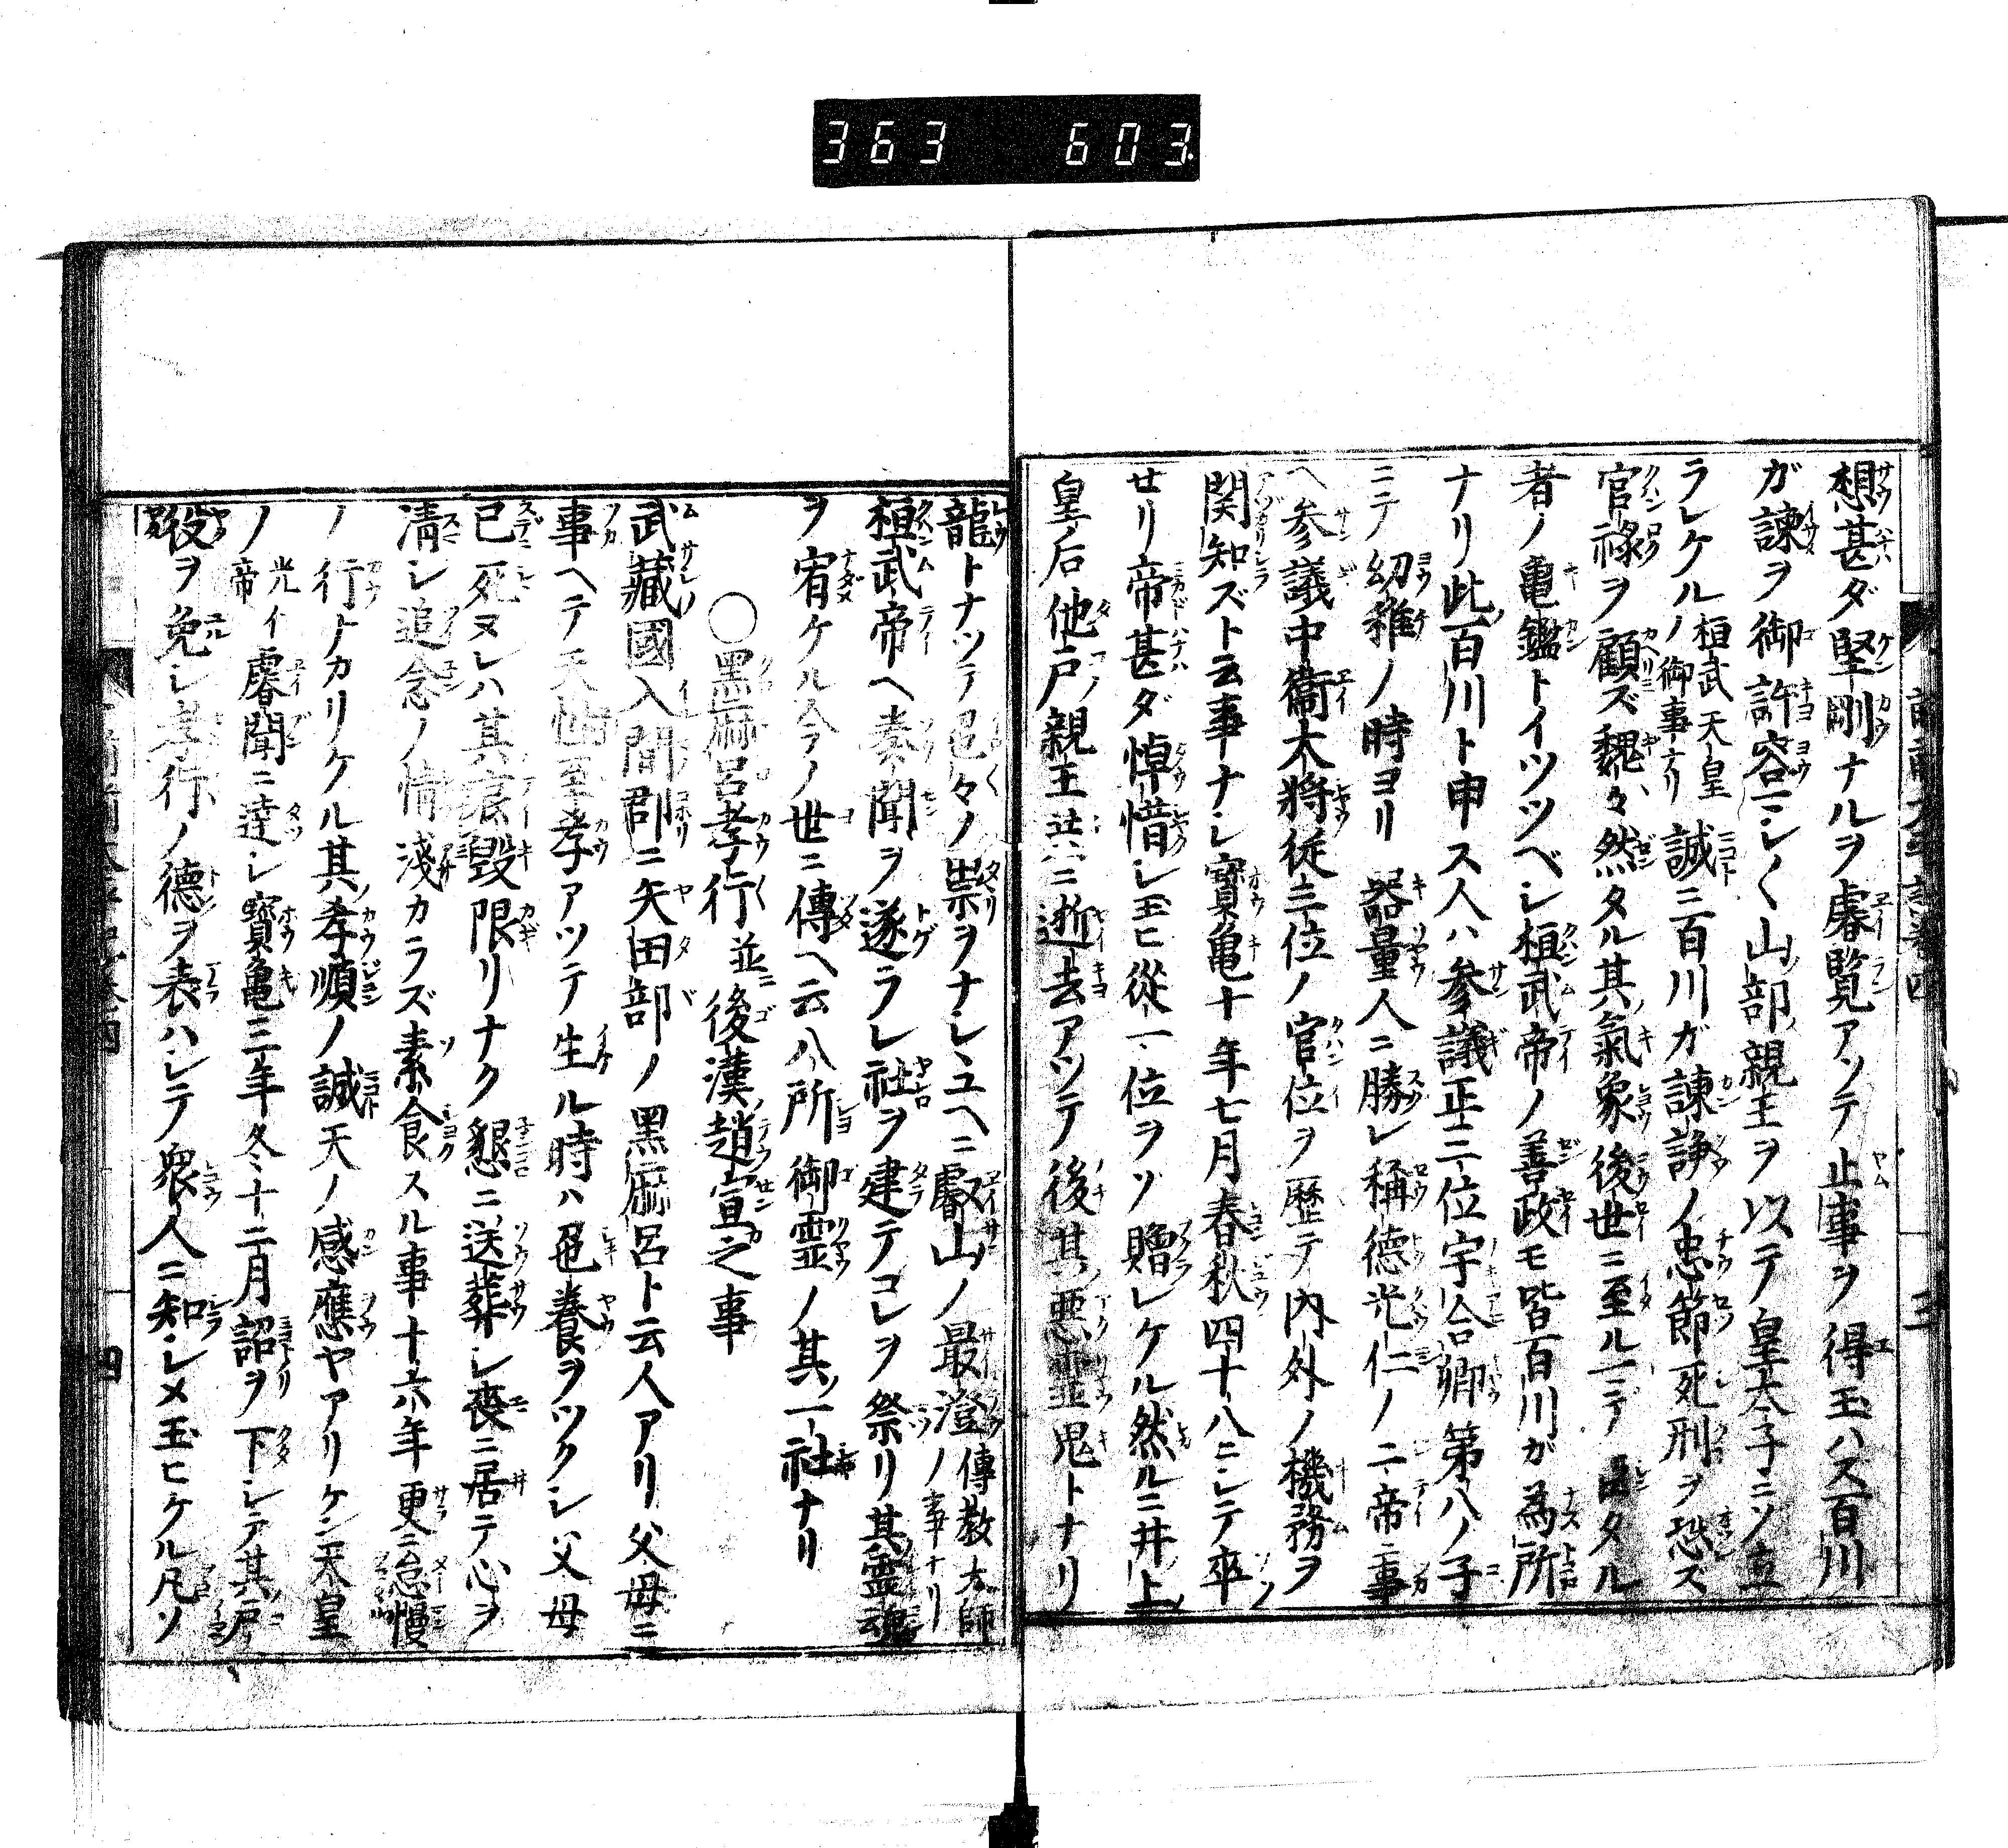 363 603
想甚ダ堅剛ナルヲ睿覧アツテ止事ヲ得玉ハス百川
ガ諫ヲ御許容ニシく山部親王ヲ以テ皇太子ニソ立
ラレケル桓武天皇ノ御事ナリ誠ニ百川ガ諫諍ノ忠節死刑ヲ恐ズ
官禄ヲ顧ズ魏々然タル其氣象後世ニ至ルニタル
者ノ亀鑑トイツツベシ桓武帝ノ善政モ皆百川ガ為所
ナリ此百川ト申ス人ハ参議正三位宇合卿第八ノ子
ニテ幼稚ノ時ヨリ器量人ニ勝レ稱德光仁ノ二帝ニ事
ヘ参議中衞大将従三位ノ官位ヲ歴テ内外ノ機務ヲ
関知ズト云事ナシ寳亀十年七月春秋四十八ニシテ卒
せリ帝甚ダ悼惜シ玉ヒ從一位ヲソ贈レケル然ルニ井上
皇后他戸親王共ニ逝去アツテ後其悪霊鬼トナリ
龍トナツテ色々ノ祟ヲナシユヘニ叡山ノ最澄傳教大師ノ事ナリ
桓武帝ヘ奏聞ヲ遂ラレ社ヲ建テコレヲ祭リ其霊魂
ヲ宥ケル今ノ世ニ傳ヘ云八所御霊ノ其一社ナリ
○黒麻呂孝行並ニ後漢趙宣之事
武藏國入間郡ニ矢田部ノ黒麻呂ト云人アリ父母ニ
事ヘテ天性至孝アツテ生ル時ハ色養ヲツクシ父母
已死ヌレハ其哀毀限リナク懇ニ送葬シ喪ニ居テ心ヲ
清シ追念ノ情淺カラズ素食スル事十六年更ニ怠慢
ノ行ナカリケル其孝順ノ誠天ノ感應ヤアリケン天皇
ノ光仁帝睿聞ニ達シ寳亀三年冬十二月詔ヲ下シテ其戸
役ヲ免シ孝行ノ德ヲ表ハシテ衆人ニ知シメ玉ヒケル凡ソ